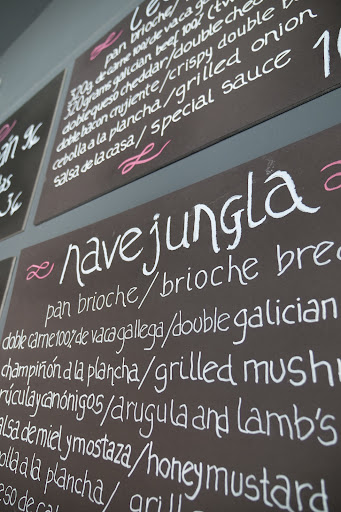 pan brioche/
320g de carne 100% de vaca galle
320grams galician beef 100% (tw
doble queso cheddar/double che
doble bacon crujiente/crispy double b
cebolla a la plancha/grilled onion
salsa de la casa/special sauce
nave jungla
pan brioche/brioche bre
doble carne 100% de vaca gallega/double galician
champiñón a la plancha/grilled mush
rúcula y canónigos/arugula and lamb's
alsa de miel y mostaza/honey mustard
bolla a la plancha/grill
eso de ca